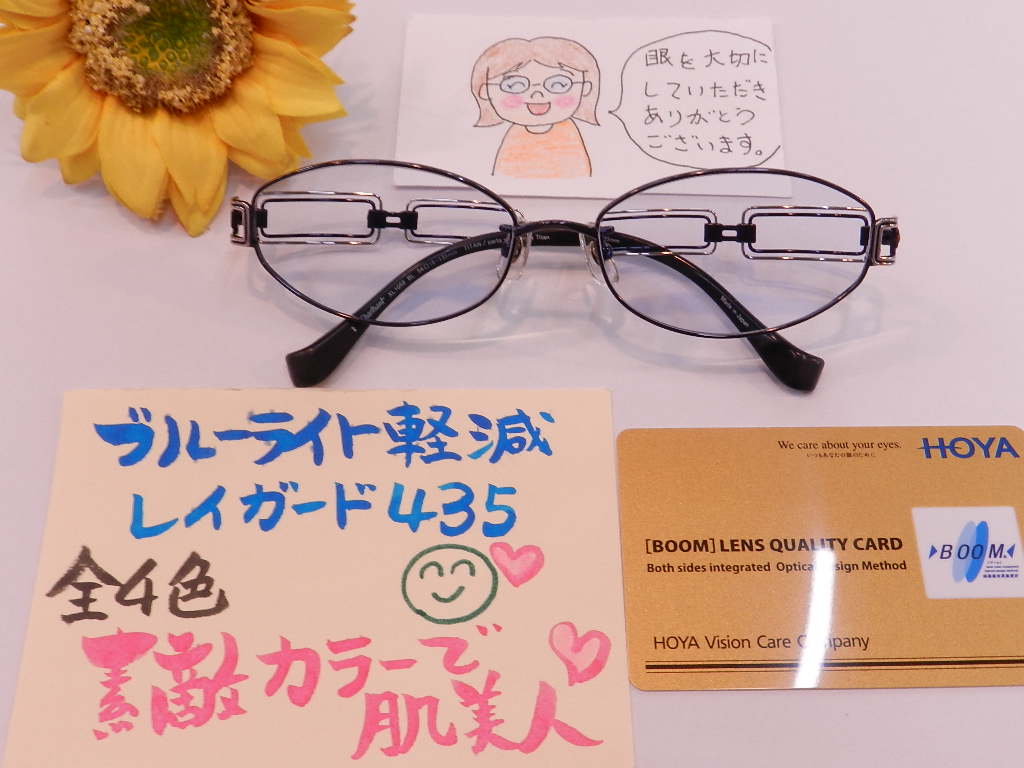 眼を大切に
していただき
ありがとう
ございます。
Made in Japan
ブルーライト軽減
レイガード435
全4色
素敵カラーで
肌美人
We care about your eyes.
いつもあなたの瞳のために
HOYA
[BOOM] LENS QUALITY CARD
Both sides integrated Optical Design Method
BOOM
HOYA Vision Care Company